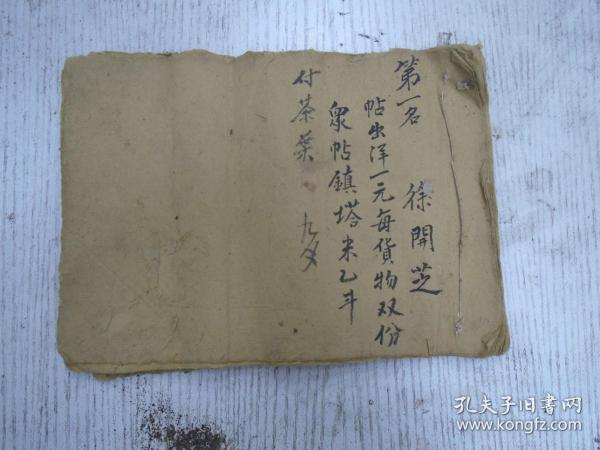 第一名 徐開芝
帖出洋一元每貨物双份
眾帖鎮塔米乙斗
付茶葉 九
孔夫子旧书网
www.kongfz.com